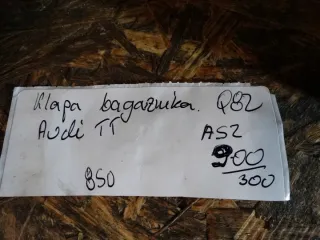 Klapa bagażnika. Q8Z
Audi TT ASZ
900
850 300